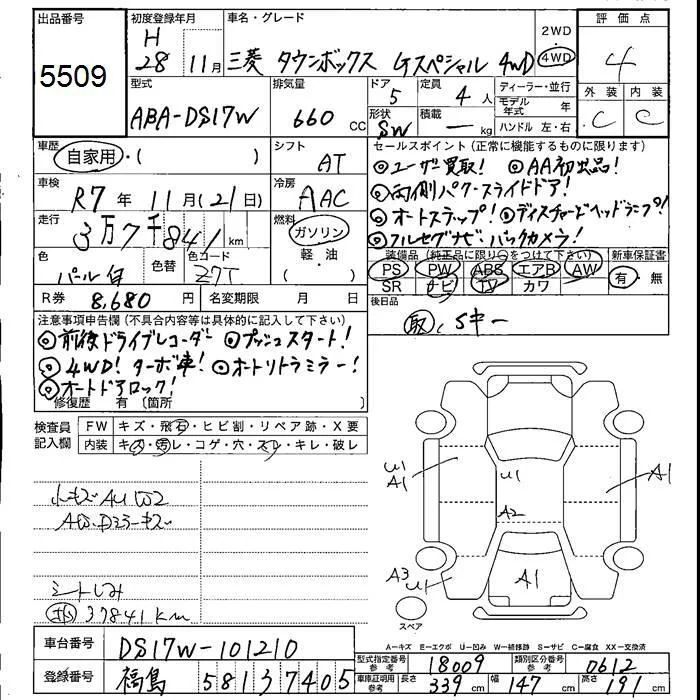 出品番号
5509
初度登録年月
H 28 11月
車名・グレード
三菱 タウンボックス Gスペシャル 4WD
2WD
4WD
評価点
4
外装 内装
C C
型式
ABA-DS17W
排気量
660 CC
ドア
5
形状
SW
定員
4 人
積載
ー kg
ディーラー・並行
モデル年式 年
ハンドル 左・右
車歴
自家用・( )
シフト
AT
車検
R7 年 11月(21日)
冷房
AAC
走行
3万7千841 km
燃料
ガソリン
軽・油
( )
色
パール白
色替
色コード
Z7T
R券 8,680 円
名変期限 月 日
セールスポイント(正常に機能するものに限ります)
◎ユーザー買取! ◎AA初出品!
◎両側パワースライドドア!
◎オートステップ! ◎ディスチャージヘッドランプ!
◎フルセグナビ・バックカメラ!
装備品(純正品に限り○をつけて下さい)
新車保証書
PS PW ABS エアB AW
SR ナビ TV カワ
有・無
後日品
取、Sキー
注意事項申告欄(不具合内容等は具体的に記入して下さい)
◎前後ドライブレコーダー ◎プッシュスタート!
◎4WD!ターボ車! ◎オートリトラミラー!
◎オートドアロック!
修復歴 有 〔箇所
検査員記入欄
FW キズ・飛石・ヒビ割・リペア跡・X要
内装 キズ・汚レ・コゲ・穴・スレ・キレ・破レ
小キズAU凹2
シートしみ
37841km
U1
A1
U1
A2
A1
A1
A3
U1
スペア
A-キズ E-エクボ U-凹み W-補修跡 S-サビ C-腐食 XX-交換済
車台番号 DS17W-101210
登録番号 福島 581 37405
型式指定番号 参考 18009
類別区分番号 参考 0612
車庫証明用 参考 長さ 339 cm 幅 147 cm 高さ 191 cm